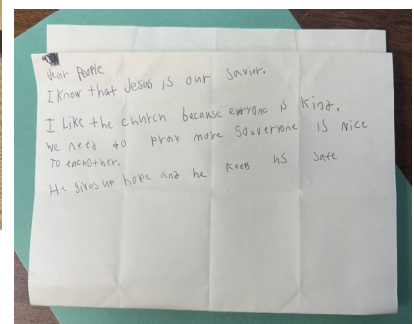 Dear People
I Know that Jesus is our Savior.
I Like the church because evryone is kind.
We need to pray more so everyone is Nice
To eachother.
He gives us hope and he keeps us safe